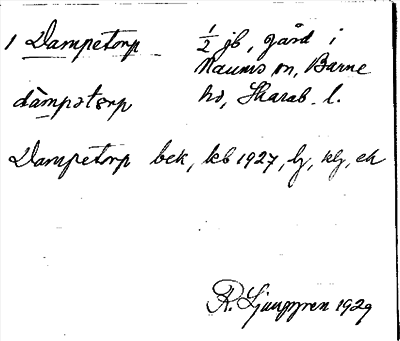 1 Dampetorp ½ jb, gård i
Naums sn, Barne
dàmpətərp hd, Skarab. l.
Dampetorp bek, kb 1927, lj, klj, ek
R. Ljunggren 1929